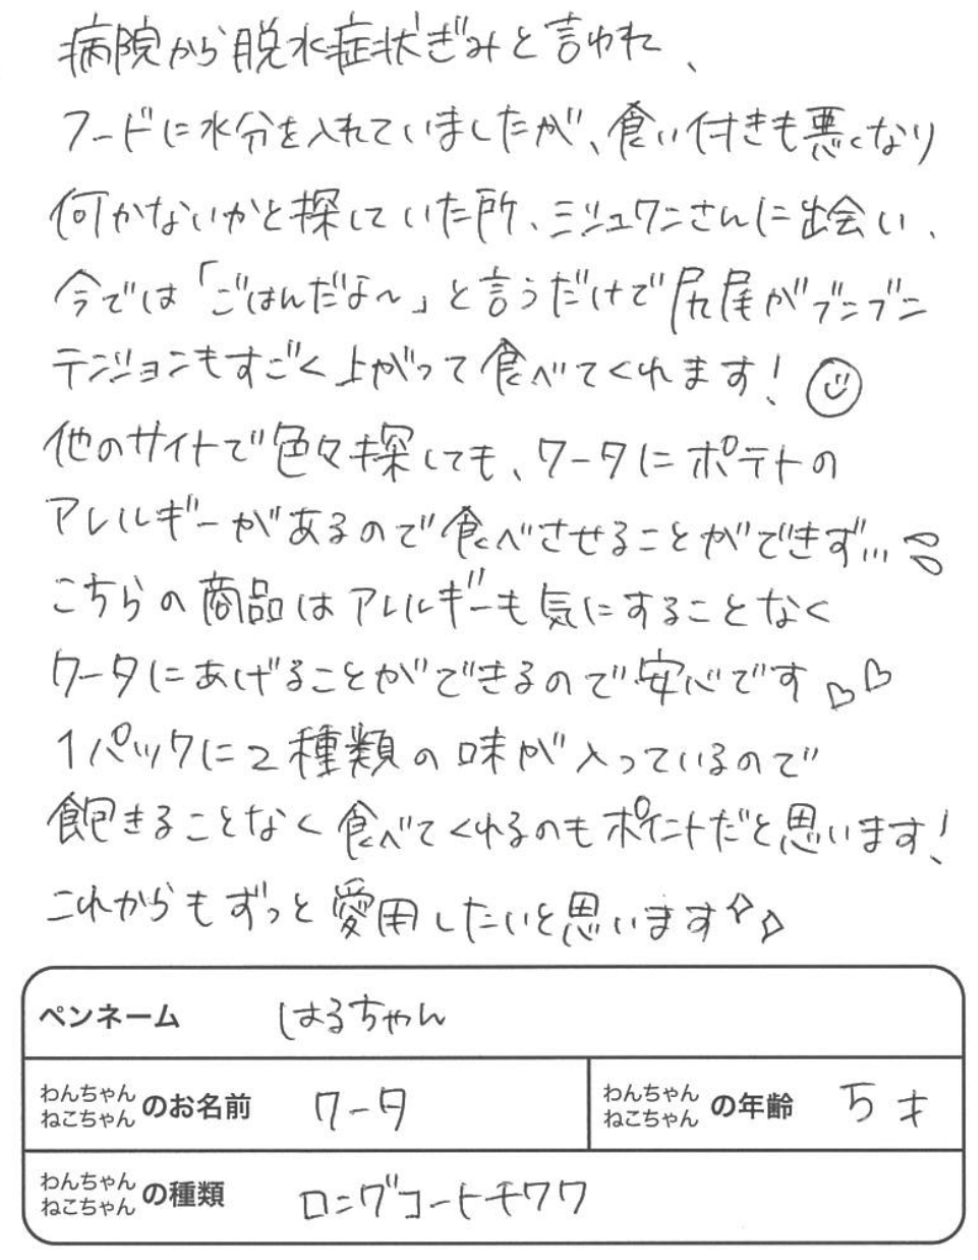 病院から脱水症状ぎみと言われ、
フードに水分を入れていましたが、食い付きも悪くなり
何かないかと探していた所、ミシュワンさんに出会い、
今では「ごはんだよ〜」と言うだけで尻尾がブンブン
テンションもすごく上がって食べてくれます!
他のサイトで色々探しても、ワータにポテトの
アレルギーがあるので食べさせることができず...
こちらの商品はアレルギーも気にすることなく
ワータにあげることができるので安心です♡♡
1パックに2種類の味が入っているので
飽きることなく食べてくれるのもポイントだと思います!
これからもずっと愛用したいと思います✧✧
ペンネーム はるちゃん
わんちゃん
ねこちゃん のお名前 ワータ
わんちゃん
ねこちゃん の年齢 5才
わんちゃん
ねこちゃん の種類 ロングコートチワワ